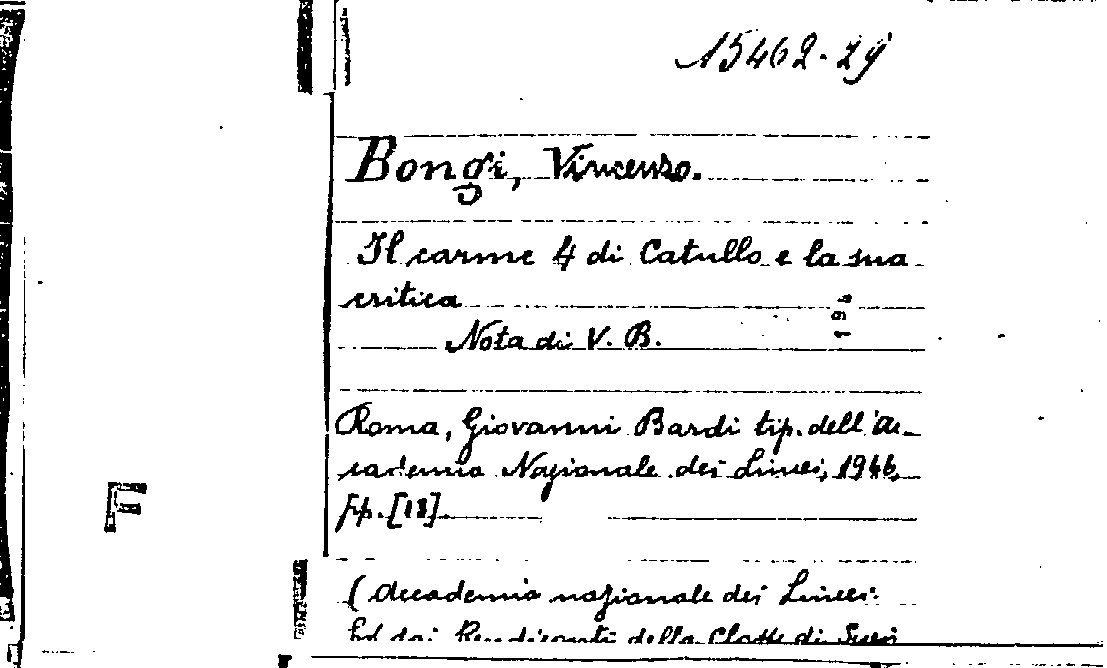 15462.29
Bongi, Vincenzo.
Il carme 4 di Catullo e la sua
critica
Nota di V. B.
194
Roma, Giovanni Bardi tip. dell'Ac-
cademia Nazionale dei Lincei, 1946,
pp. [18]
F
(Accademia nazionale dei Lincei.
Est. dai Rendiconti della Classe di Scien